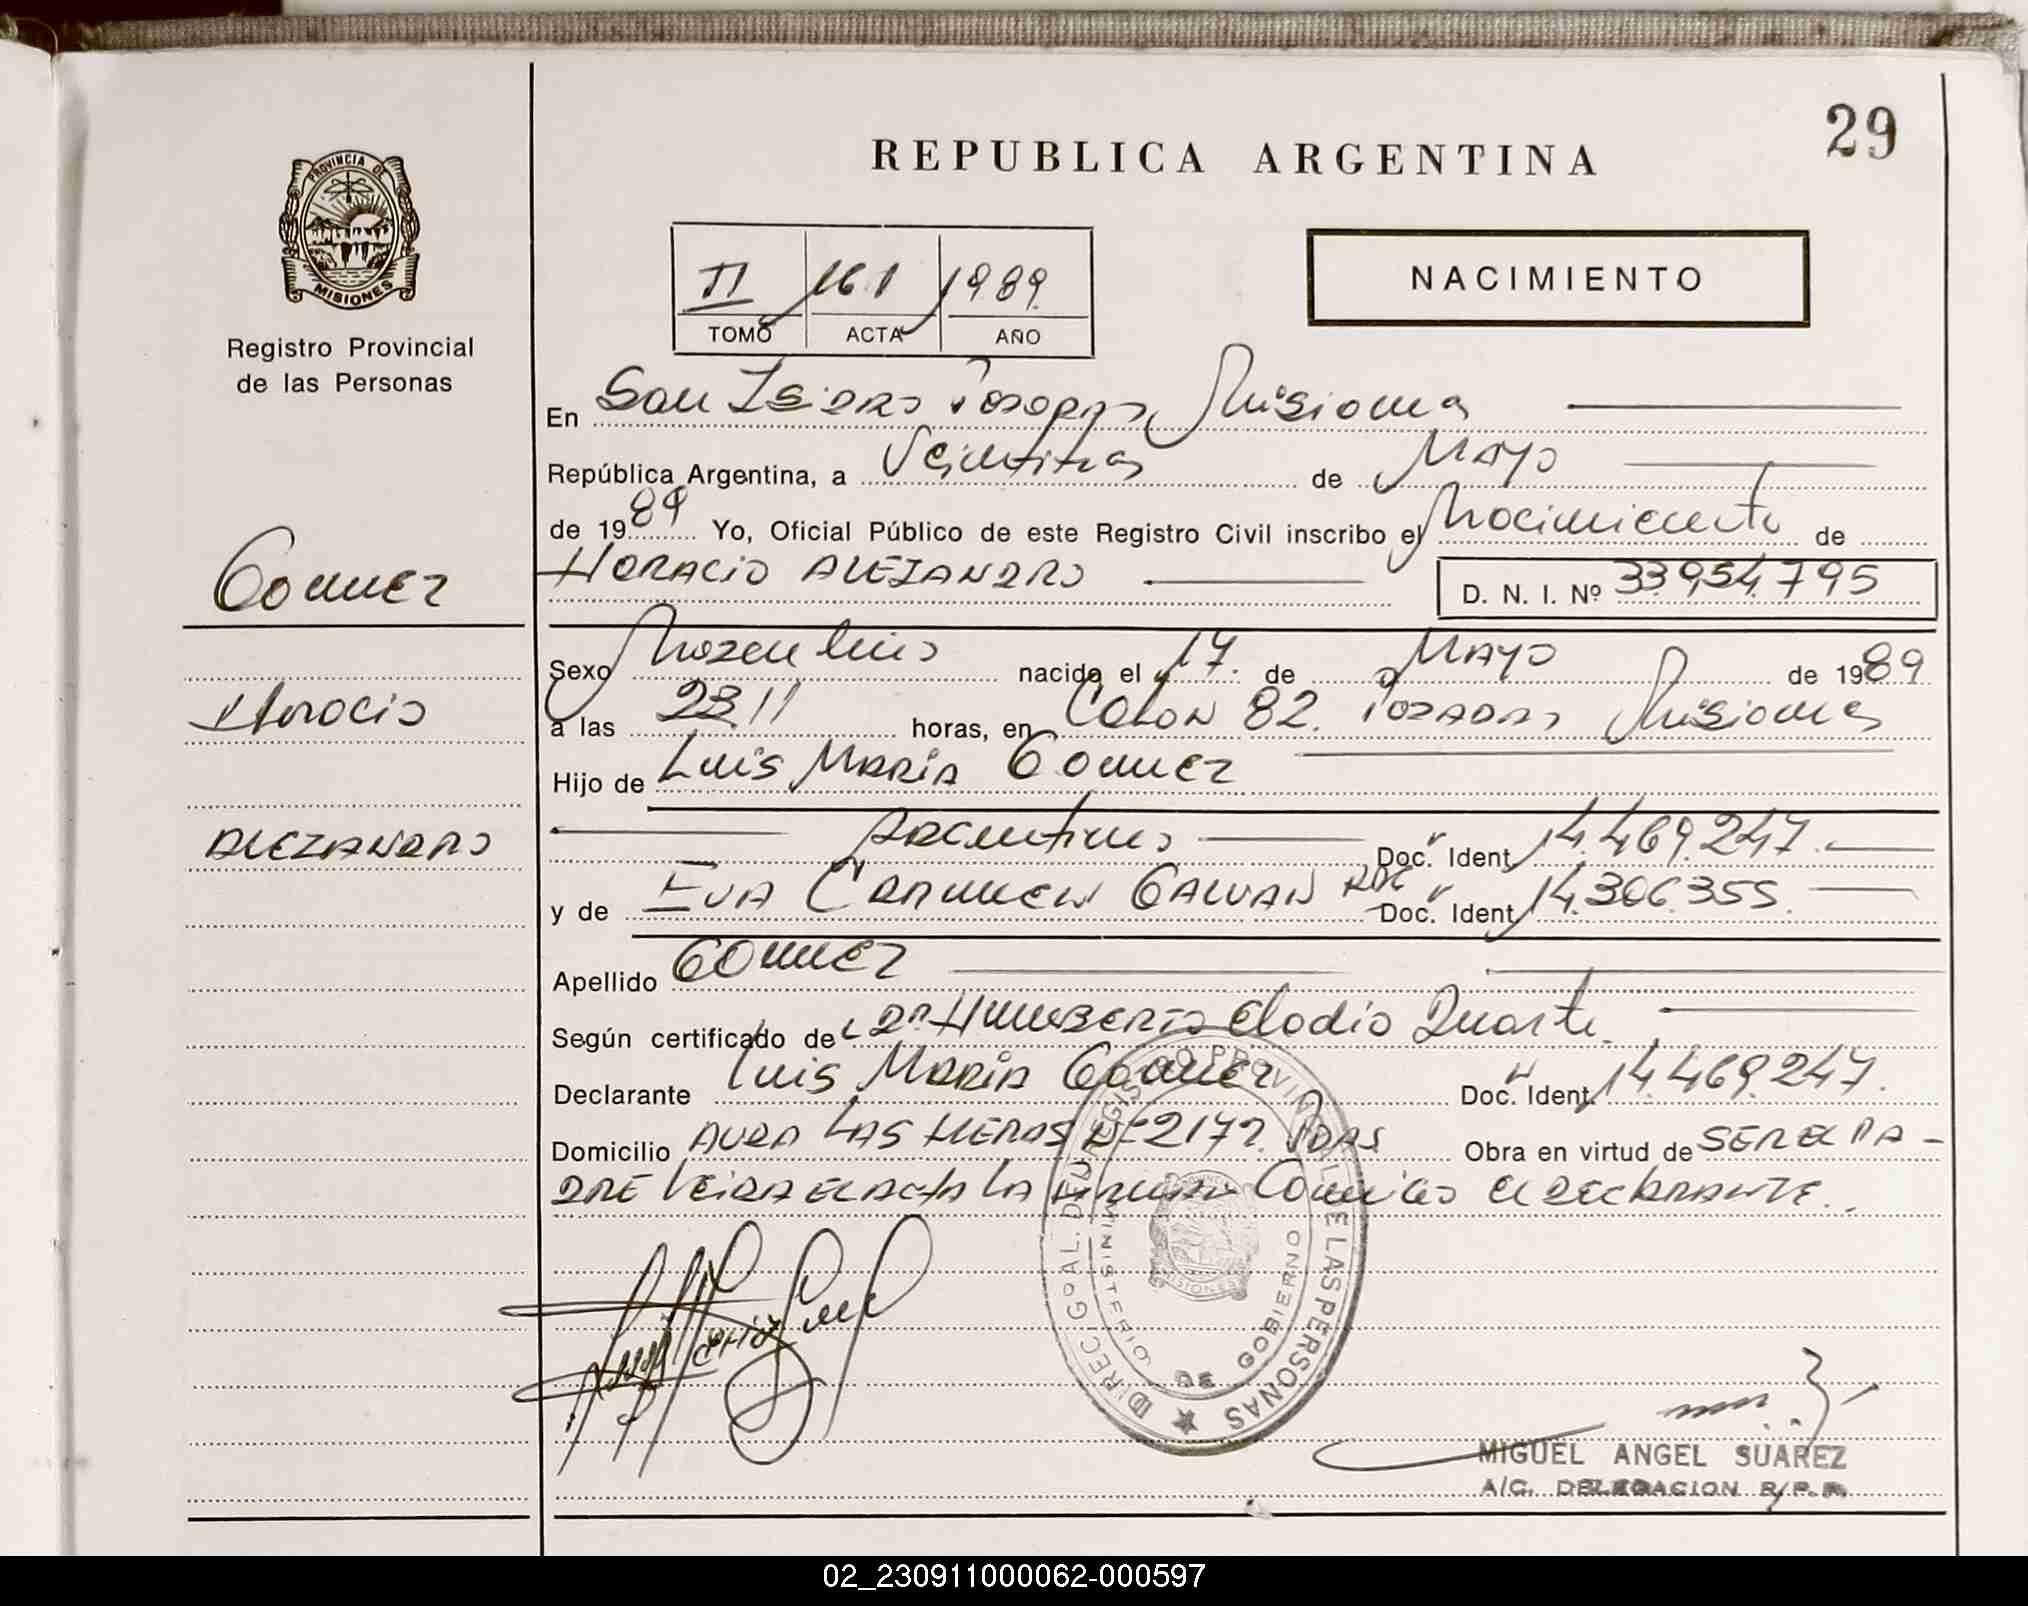 29
REPUBLICA ARGENTINA
PROVINCIA DE
MISIONES
Registro Provincial
de las Personas
II 161 1989
TOMO ACTA AÑO
NACIMIENTO
En San Isidro Posadas Misiones
República Argentina, a Veintitres de Mayo
de 1989 Yo, Oficial Público de este Registro Civil inscribo el Nacimiento de
HORACIO ALEJANDRO D. N. I. Nº 33.954.795
Gomez
Horacio
ALEJANDRO
Sexo Masculino nacido el 17. de Mayo de 1989
a las 23.11 horas, en COLON 82. POSADAS Misiones
Hijo de Luis MARIA Gomez
Argentino Doc. Ident. 14.469.247.
y de EVA CARMEN GALVAN Doc. Ident. 14.306.355.
Apellido GOMEZ
Según certificado de Dr HUMBERTO Elodio Duarte.
Declarante Luis MARIA Gomez Doc. Ident. 14.469.247.
Domicilio AVDA LAS HERAS Nº 2172. PDAS Obra en virtud de SER EL PA-
DRE Leida el acta la firma Conmigo el DECLARANTE.
DIREC. Gº AL. DEL REGISTRO PROVINCIAL DE LAS PERSONAS
MINISTERIO DE GOBIERNO
MISIONES
MIGUEL ANGEL SUAREZ
A/C. DELEGACION R.P.P.
02_230911000062-000597